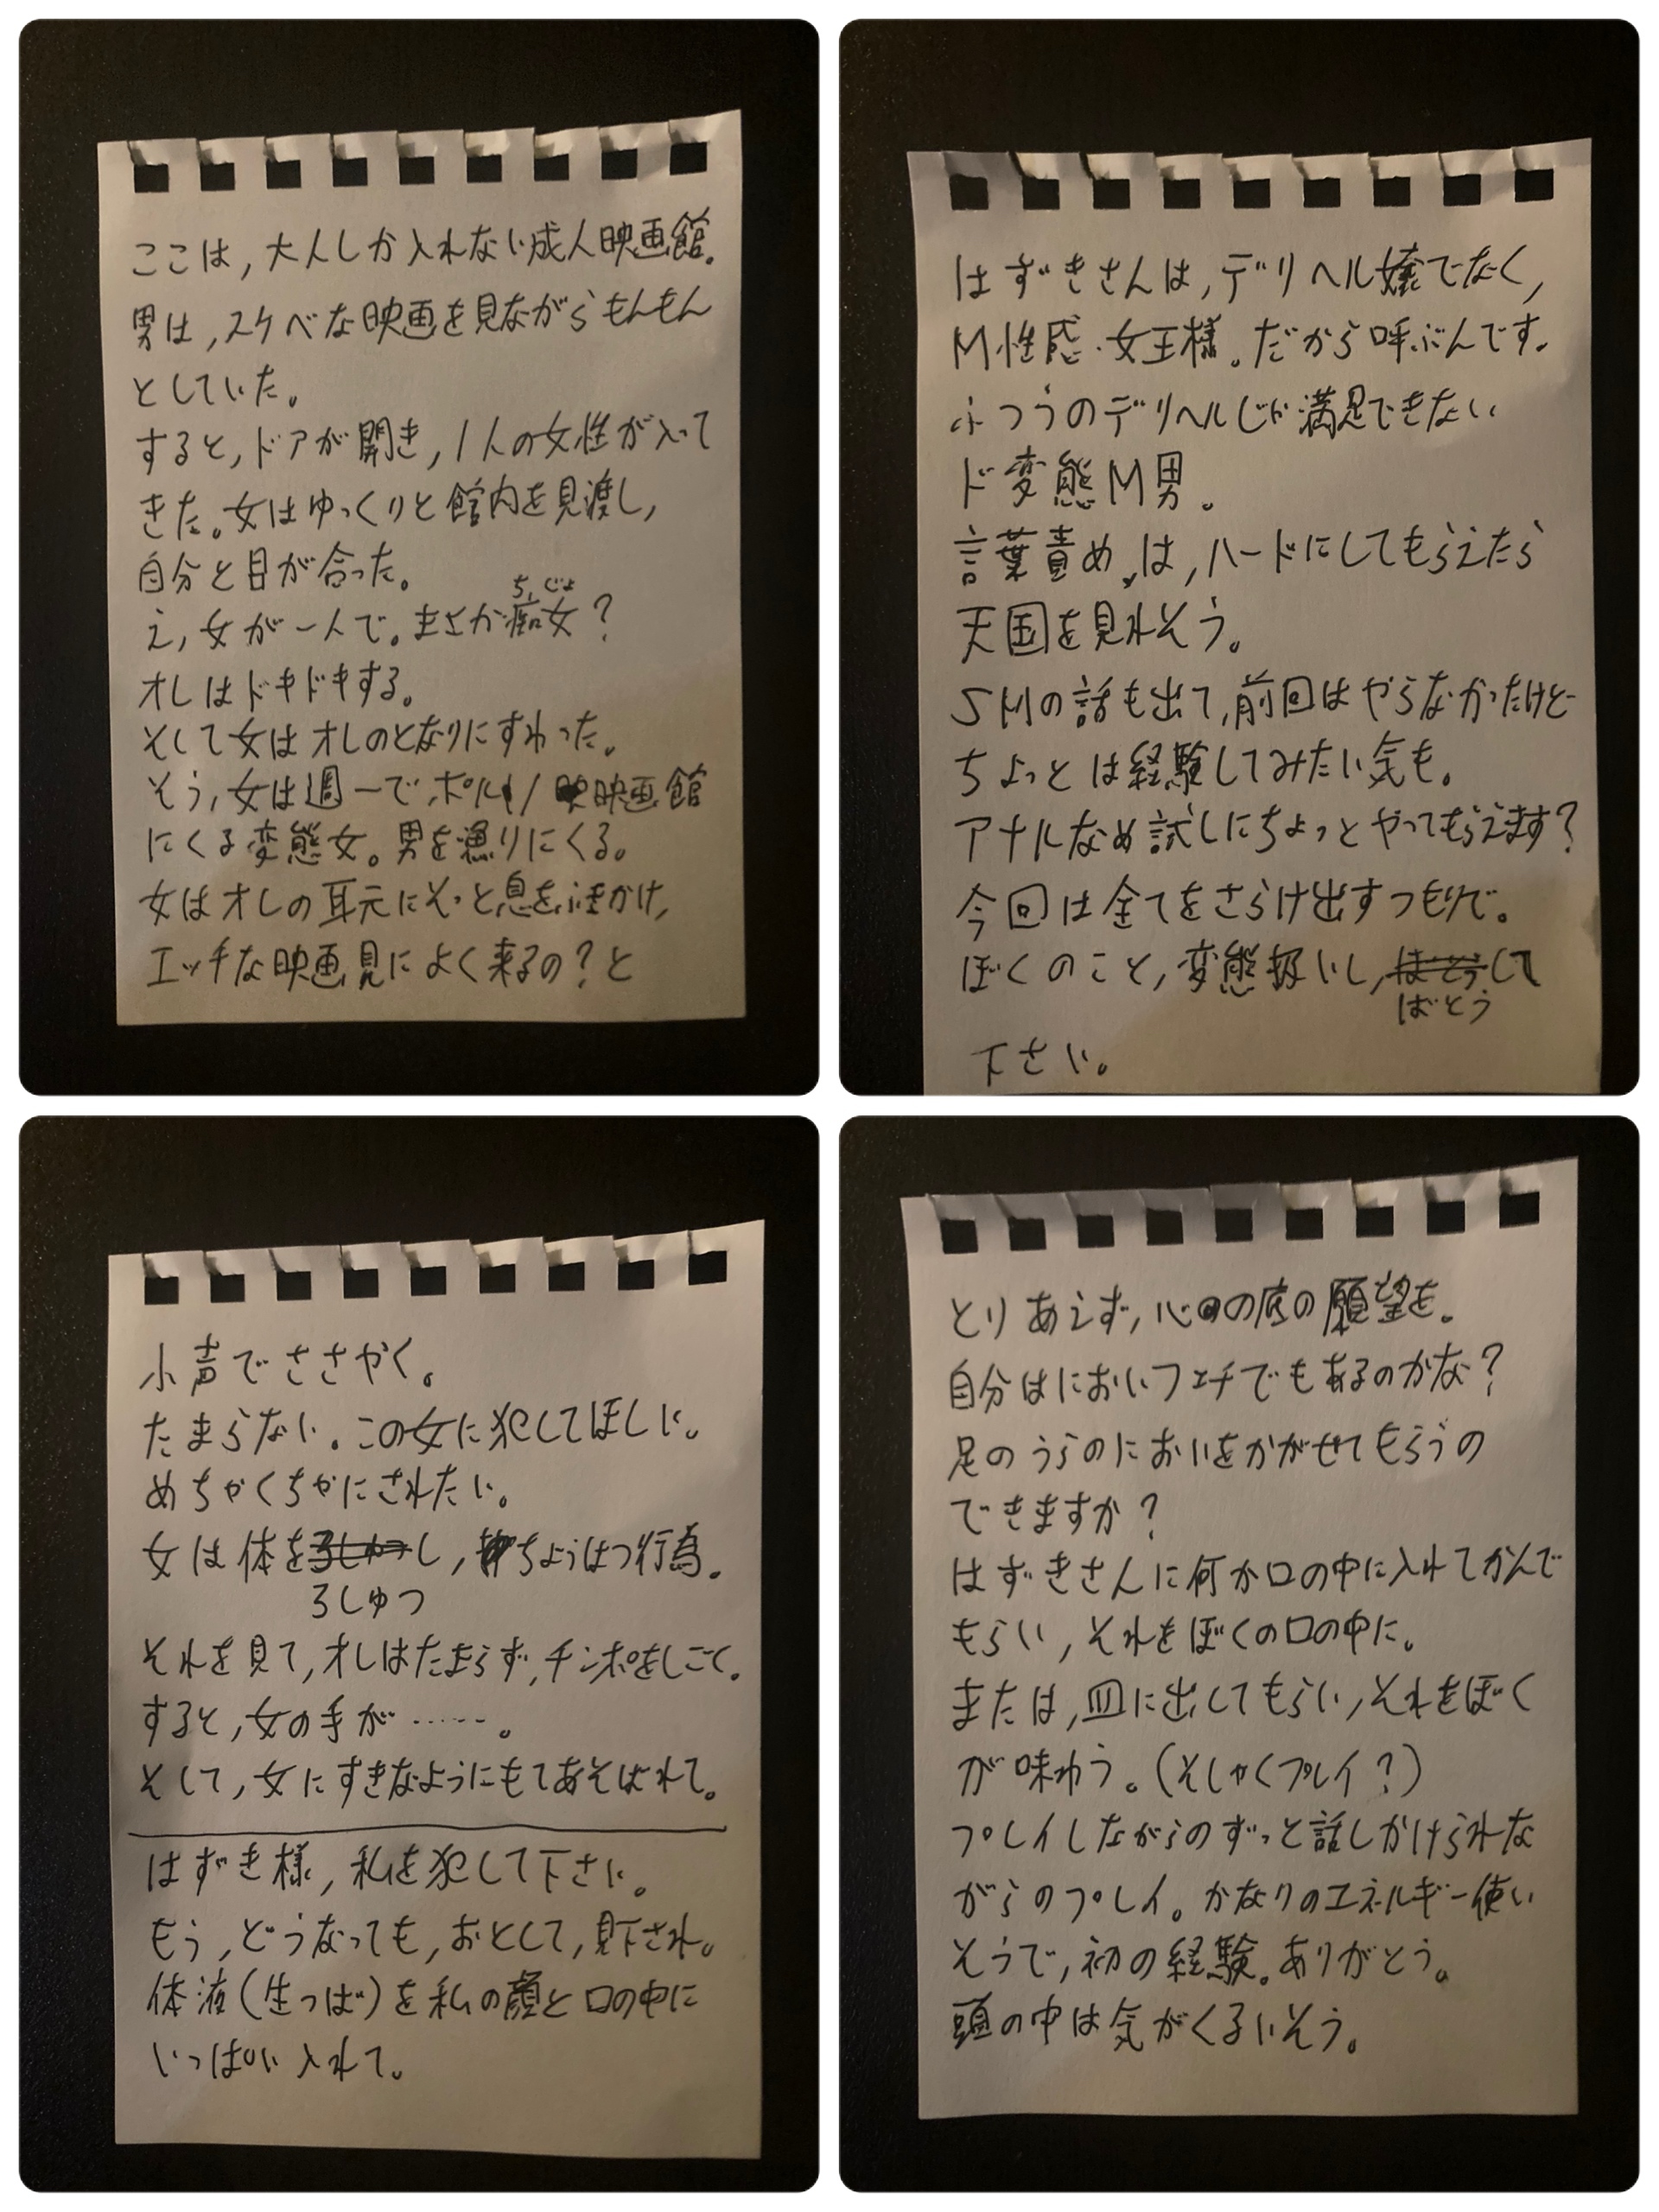 ここは,大人しか入れない成人映画館。
男は,スケベな映画を見ながらもんもん
としていた。
すると,ドアが開き,1人の女性が入って
きた。女はゆっくりと館内を見渡し,
自分と目が合った。
え,女が一人で。まさか痴女?
ちじょ
オレはドキドキする。
そして女はオレのとなりにすわった。
そう,女は週一でポルノ映画館
にくる変態女。男を漁りにくる。
女はオレの耳元にそっと息を吹きかけ,
エッチな映画見によく来るの?と
はずきさんは,デリヘル嬢でなく,
M性感・女王様。だから呼ぶんです。
ふつうのデリヘルじゃ満足できない
ド変態M男。
言葉責めは,ハードにしてもらえたら
天国を見れそう。
SMの話も出て,前回はやらなかったけど
ちょっとは経験してみたい気も。
アナルなめ試しにちょっとやってもらえます?
今回は全てをさらけ出すつもりで。
ぼくのこと,変態扱いし,ばとうして
ばとう
下さい。
小声でささやく。
たまらない。この女に犯してほしい。
めちゃくちゃにされたい。
女は体をし,ちょうはつ行為。
ろしゅつ
それを見て,オレはたまらず,チンポをしごく。
すると,女の手が……。
そして,女にすきなようにもてあそばれて。
はずき様,私を犯して下さい。
もう,どうなっても,おとして,見下され。
体液(生つば)を私の顔と口の中に
いっぱい入れて。
とりあえず,心の底の願望を。
自分はにおいフェチでもあるのかな?
足のうらのにおいをかがせてもらうの
できますか?
はずきさんに何か口の中に入れてかんで
もらい,それをぼくの口の中に。
または,皿に出してもらい,それをぼく
が味わう。(そしゃくプレイ?)
プレイしながらのずっと話しかけられな
がらのプレイ。かなりのエネルギー使い
そうで,初の経験。ありがとう。
頭の中は気がくるいそう。